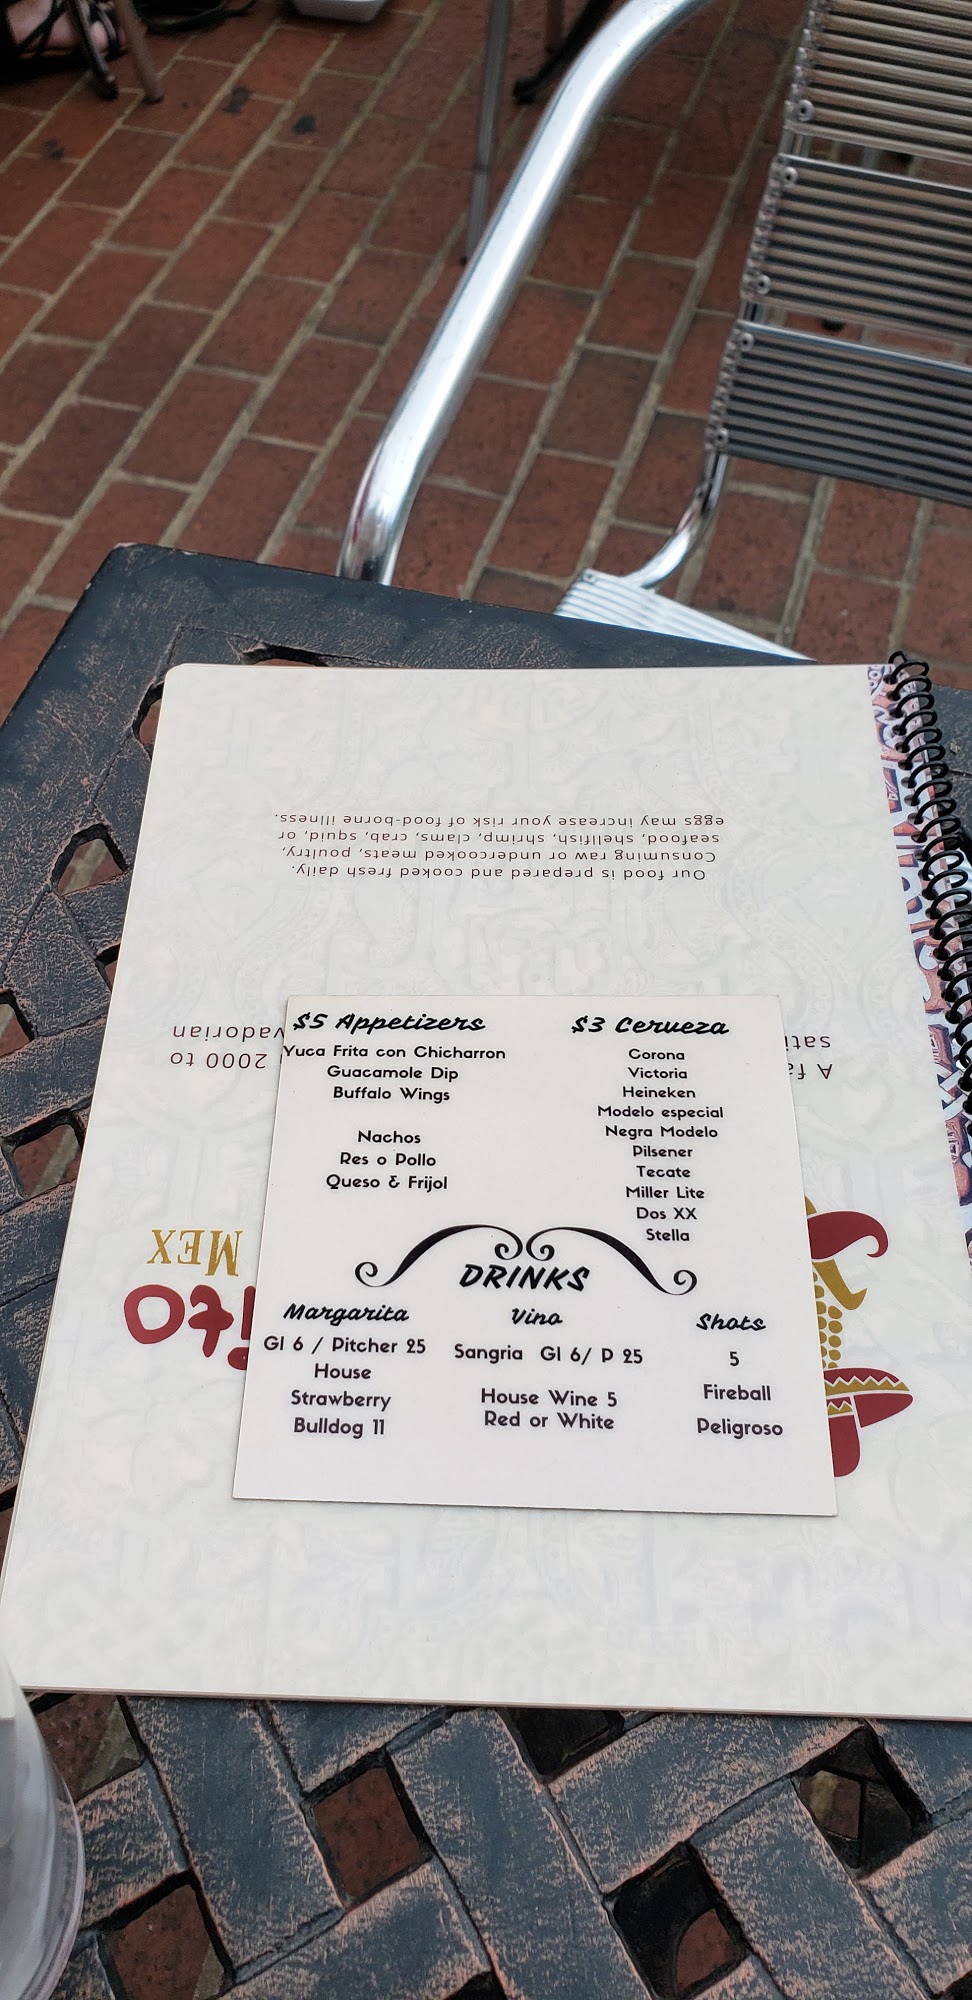 Our food is prepared and cooked fresh daily.
Consuming raw or undercooked meats, poultry,
seafood, shellfish, shrimp, clams, crab, squid, or
eggs may increase your risk of food-borne illness.
$5 Appetizers
Yuca Frita con Chicharron
Guacamole Dip
Buffalo Wings
Nachos
Res o Pollo
Queso & Frijol
$3 Cerveza
Corona
Victoria
Heineken
Modelo especial
Negra Modelo
Pilsener
Tecate
Miller Lite
Dos XX
Stella
DRINKS
Margarita
Gl 6 / Pitcher 25
House
Strawberry
Bulldog 11
Vino
Sangria Gl 6/ P 25
House Wine 5
Red or White
Shots
5
Fireball
Peligroso
A fa
2000 to
sati
vadorian
ito
MEX